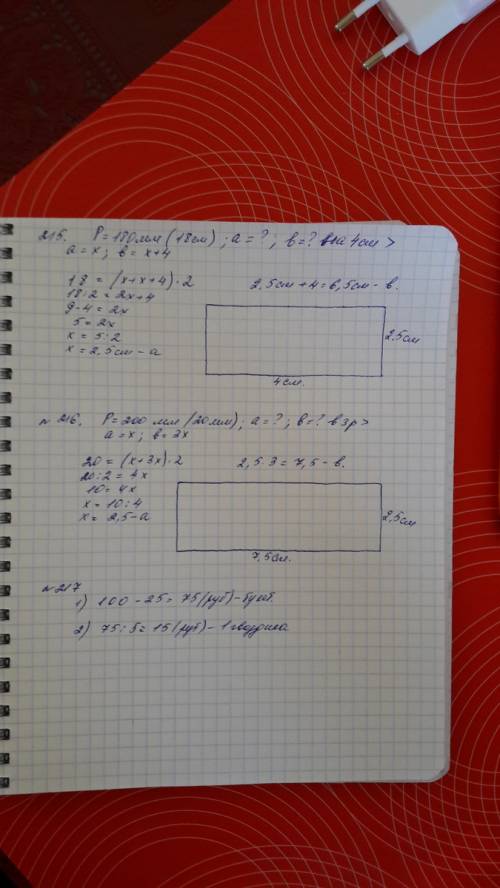 215. P=180мм (18см); a=?; в=? в на 4см >
a=x; в=x+4
18 = (x+x+4)·2
18:2 = 2x+4
9-4 = 2x
5 = 2x
x = 5:2
x = 2,5см - a
2,5см+4=6,5см - в.
2,5см
4см.
№216. P=200 мм (20мм); a=?; в=? в 3р >
a=x; в=3x
20 = (x+3x)·2
20:2 = 4x
10 = 4x
x = 10:4
x = 2,5 - a
2,5·3=7,5 - в.
2,5см
7,5см.
№217
1) 100 - 25 = 75 (руб) - букет.
2) 75:5=15 (руб) - 1 гвоздика